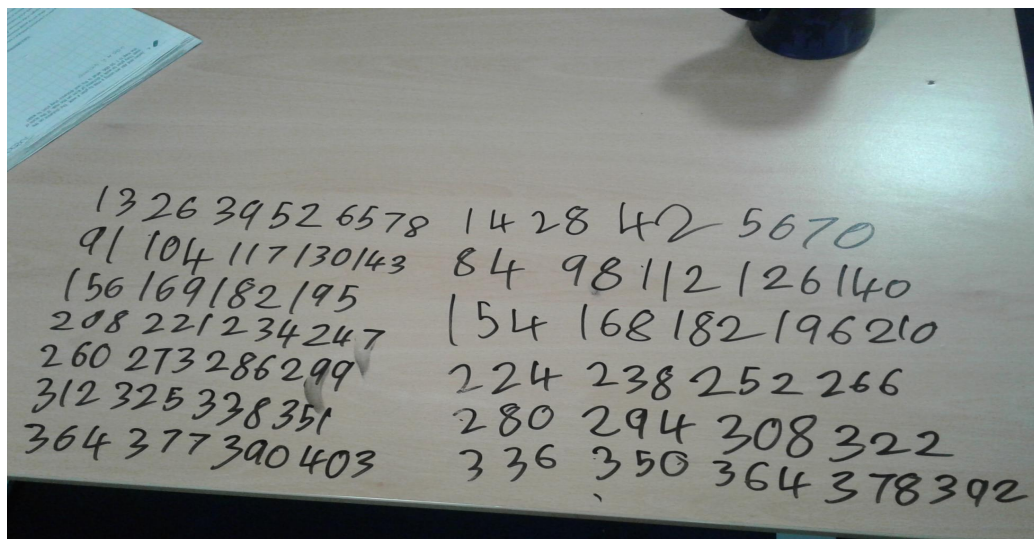 13 26 39 52 65 78
91 104 117 130 143
156 169 182 195
208 221 234 247
260 273 286 299
312 325 338 351
364 377 390 403
14 28 42 56 70
84 98 112 126 140
154 168 182 196 210
224 238 252 266
280 294 308 322
336 350 364 378 392